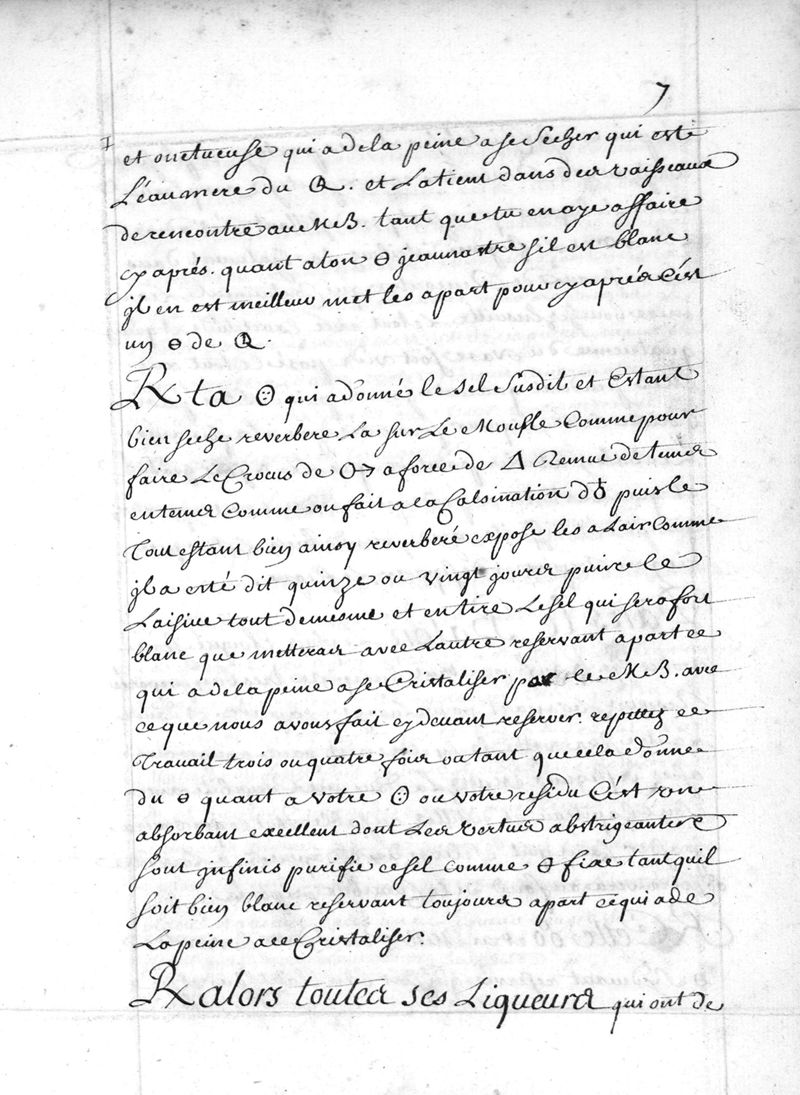 7
et onctueuse qui a de la peine a se secher qui est
L'eau mere du 🜕. et La tient dans deux vaisseaux
de rencontre au MB. tant que tu en aye affaire
cy aprés. quant a ton 🜔 jeaunastre sil est blanc
jl en est meilleur met les apart pour cy aprés C'ést
un 🜔 de 🜕.
℞ ta ☉ qui a donné le sel susdit et Estant
bien seche reverbere La sur Le Moufle Comme pour
faire Le Crocus de ♂ a force de 🜂 Remue de temps
en temps Comme on fait a la Calsination d♁ puis le
Tout estant bien ainsy reverberé expose les a Lair Comme
jl a esté dit quinze ou vingt jours puis le
Laisive tout de mesme et en tire Le sel qui sera fort
blanc que metteras avec Lautre reservant apart ce
qui a de la peine a se Cristaliser par le MB. avec
ce que nous avons fait cy devant reserver. repettez ce
Travail trois ou quatre fois ou tant que cela donne
du 🜔 quant a votre ☉ ou votre residu C'ést un
absorbant excellent dont Les vertus abstrigeantes
sont jnfinis purifie ce sel comme 🜔 fixe tant quil
soit bien blanc reservant toujours apart ce qui a de
La peine a ce Cristaliser.
℞ alors toutes ses Liqueurs qui ont de